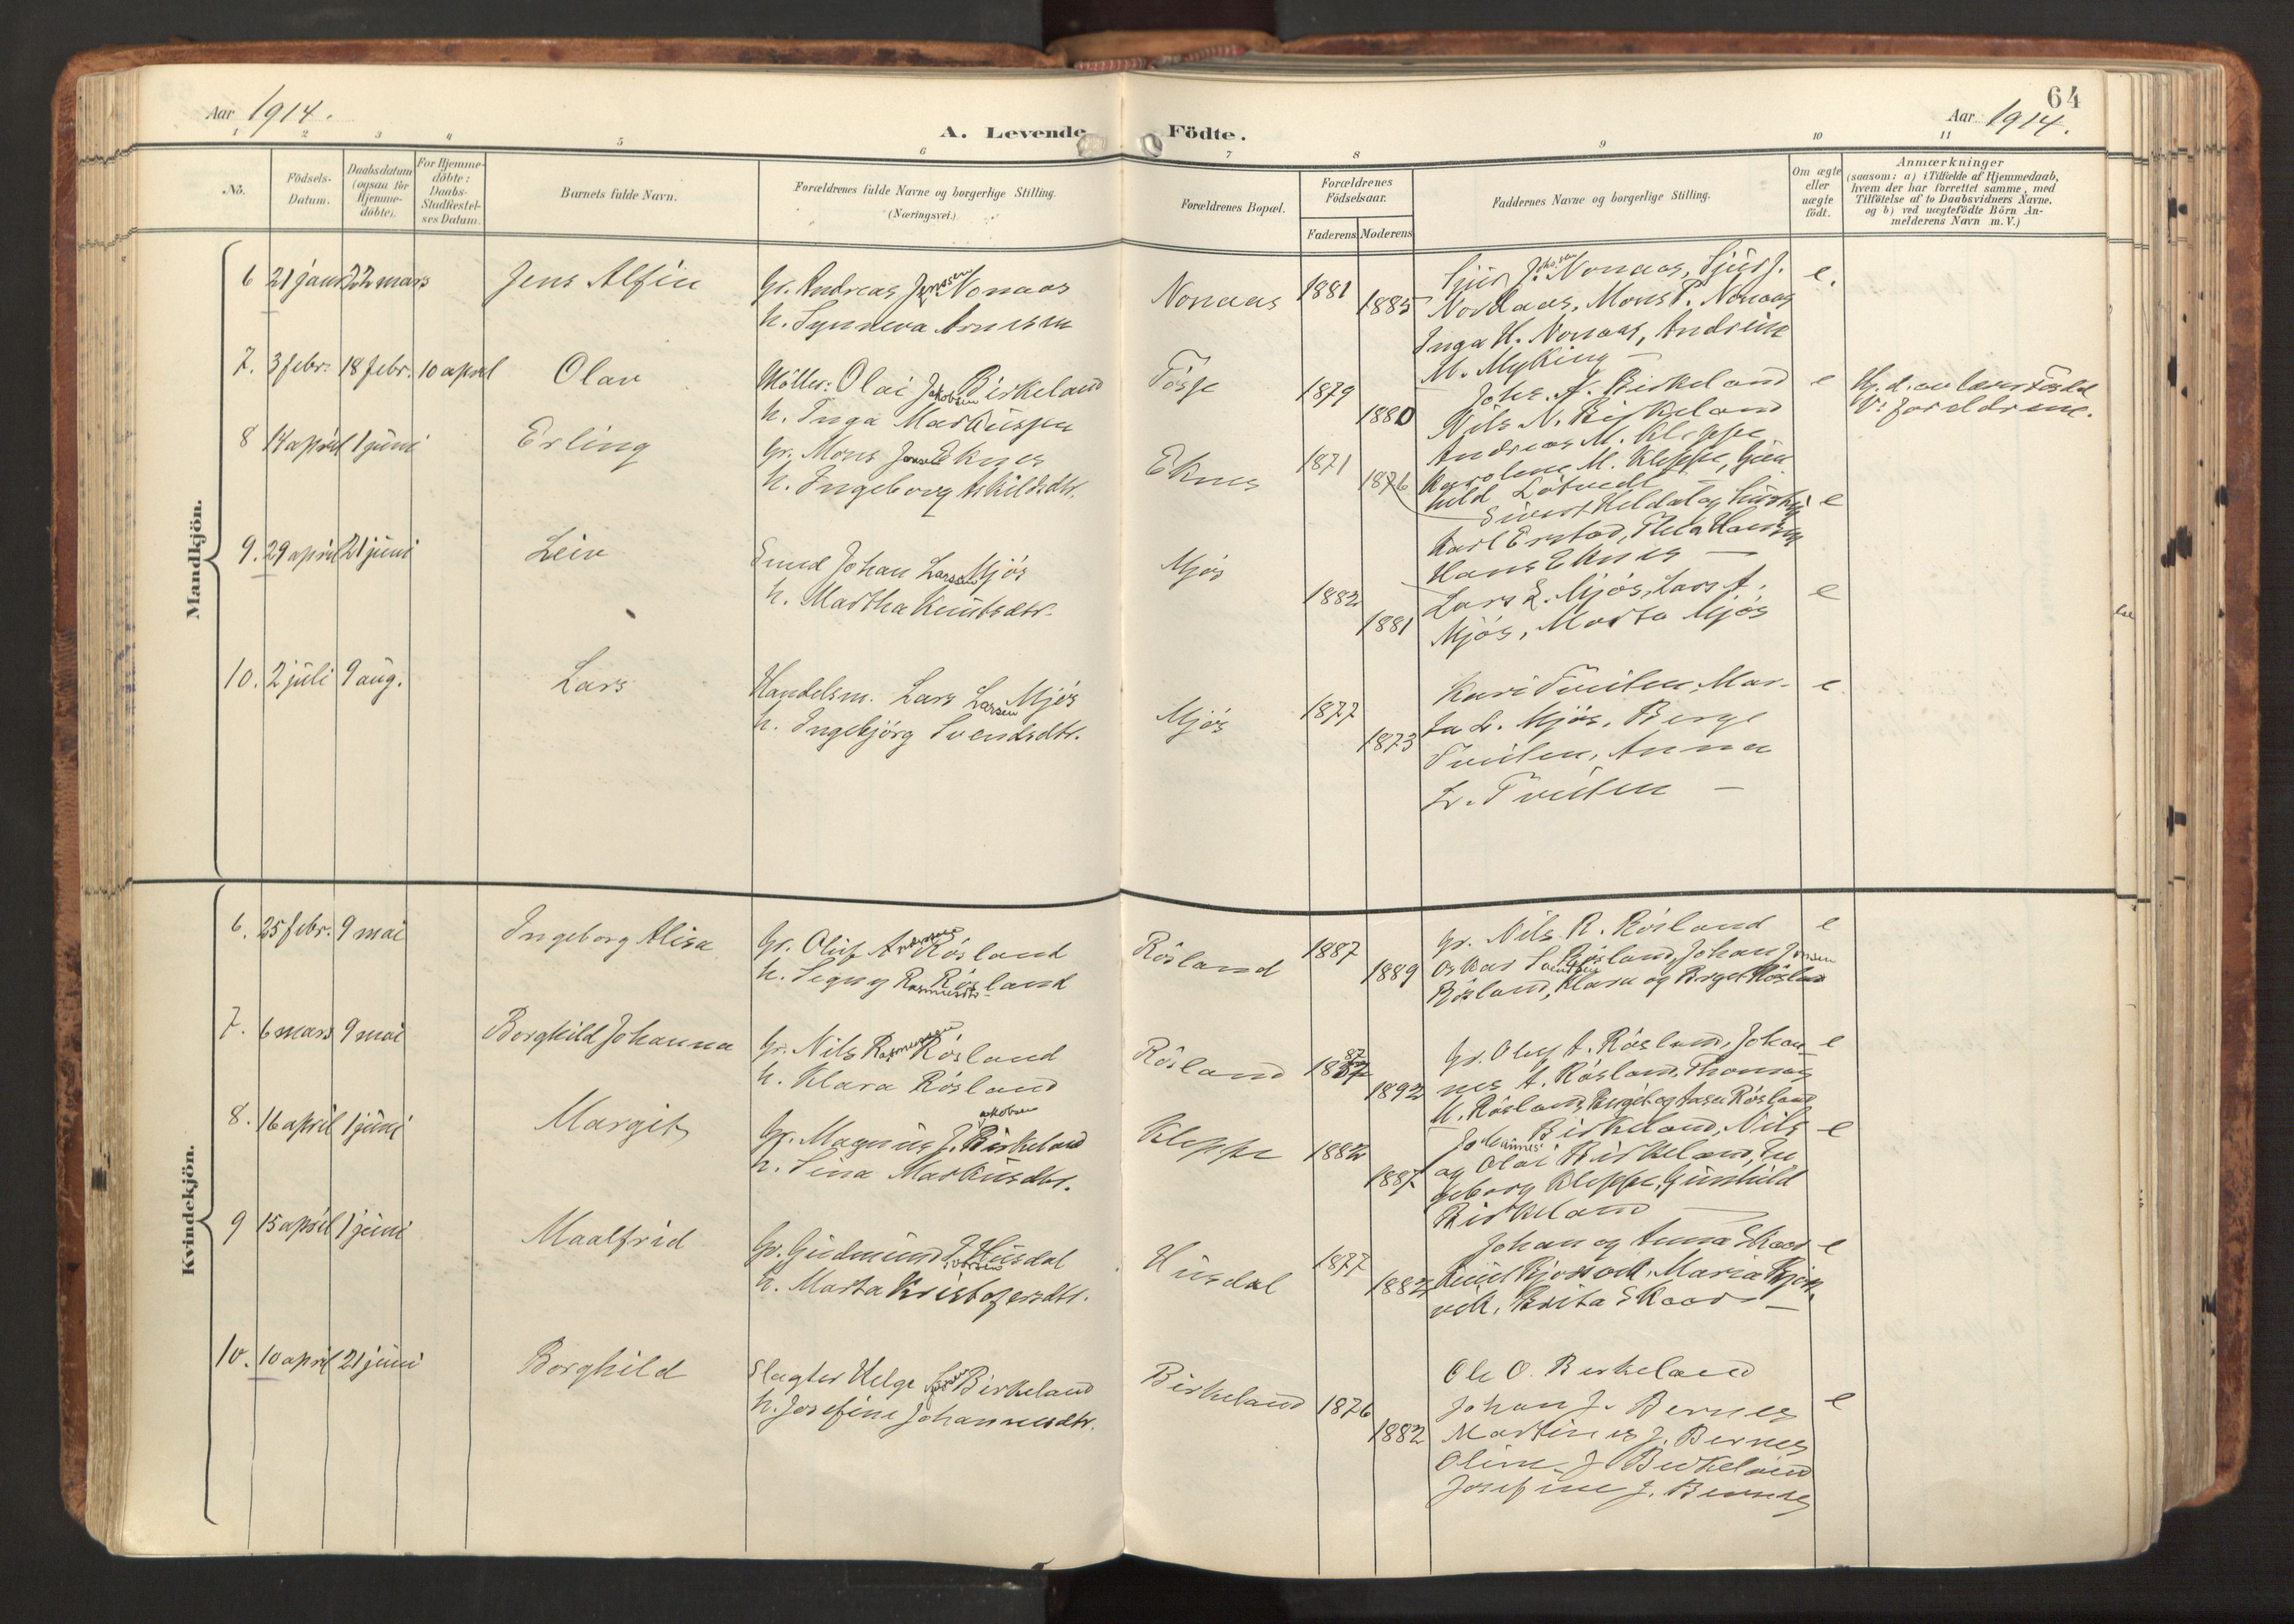 Aar 1914.
A. Levende Födte.
64
Aar 1914.
1 2 3 4 5 6 7 8 9 10 11
No.
Födsels-Datum.
Daabsdatum (ogsaa for Hjemme-döbte).
For Hjemme-döbte: Daabs-Stadfæstel-ses Datum.
Barnets fulde Navn.
Forældrenes fulde Navne og borgerlige Stilling. (Næringsvei.)
Forældrenes Bopæl.
Forældrenes Födselsaar.
Faderens Moderens
Faddernes Navne og borgerlige Stilling.
Om ægte eller uægte födt.
Anmærkninger
(saasom: a) i Tilfælde af Hjemmedaab,
hvem der har forrettet samme, med
Tilföielse af to Daabsvidners Navne,
og b) ved uægtefödte Börn An-
melderens Navn m. V.)
Mandkjön.
6 21 janr 22 mars Jens Alfin
Gr. Andreas Jensen Nonaas
h. Synneva Arnesen
Nonaas 1881 1885
Sjur J. Nonaas, Sjur J.
Nordaas, Mons P. Nonaas
Inga H. Nonaas, Andrine
M. Myking —
e.
7. 3 febr. 18 febr. 10 april Olav
Möller: Olai Jakobsen Birkeland
h. Inga Markussen
Fosse 1879 1880
Johs. N. Birkeland
Nils N. Birkeland
Andreas M. Kleppe
Karoline M. Kleppe, Gun
hild Lötvedt —
e
Hj. d. av Lars Fosse
V: foreldrene.
8 14 april 1 juni Erling
Gr. Mons Jonsen Eknes
h. Ingeborg Askildsdtr.
Eknes 1871 1876
Sivert Heldal og hustru
Karl Erstad, Thea Hansen
Hans Eknes —
e
9. 29 april 21 juni Leiv
Smed Johan Larsen Mjös
h. Martha Knutsdtr.
Mjös 1882 1881
Lars L. Mjös, Lars A.
Mjös, Marta Mjös
e
10. 2 juli 9 aug. Lars
Handelsm. Lars Larsen Mjös
h. Ingebjörg Svendsdtr.
Mjös 1877 1873
Kari Tveiten, Mar-
ta L. Mjös, Berge
Tveiten, Anna
L. Tveiten —
e
Kvindekjön.
6. 25 febr. 9 mai Ingeborg Alisa
Gr. Oluf Andersen Rösland
h. Signy Rasmusdtr. Rösland
Rösland 1887 1889
Gr. Nils R. Rösland
Oskar Svendsen Rösland, Johan Jonsen
Rösland, Klara og Birget Rösland
e
7. 6 mars 9 mai Borghild Johanna
Gr. Nils Rasmussen Rösland
h. Klara Rösland
Rösland 1887 1892
Gr. Oluf A. Rösland, Johan-
nes A. Rösland, Thomas
M. Rösland, Birgit og Aasa Rösland
e
8. 16 april 1 juni Margit
Gr. Magnus Jakobsen Birkeland
h. Sina Markusdtr.
Kleppe 1882 1887
Johannes Birkeland, Nils
og Olai Birkeland, In
geborg Kleppe, Gunhild
Birkeland —
e
9 15 april 1 juni Maalfrid
Gr. Gudmund Iversen Husdal
h. Marta Kristofersdtr.
Husdal 1877 1882
Johan og Anna Skaar
Knut Kjosvik, Maria Kjos
vik, Brita Skaar —
e
10. 10 april 21 juni Borghild
Slagter Helge Birkeland
h. Josefine Johannesdtr.
Birkeland 1876 1882
Ole O. Birkeland
Johan J. Bernes
Martines J. Bernes
Oline J. Birkeland
Josefine J. Bernes
e